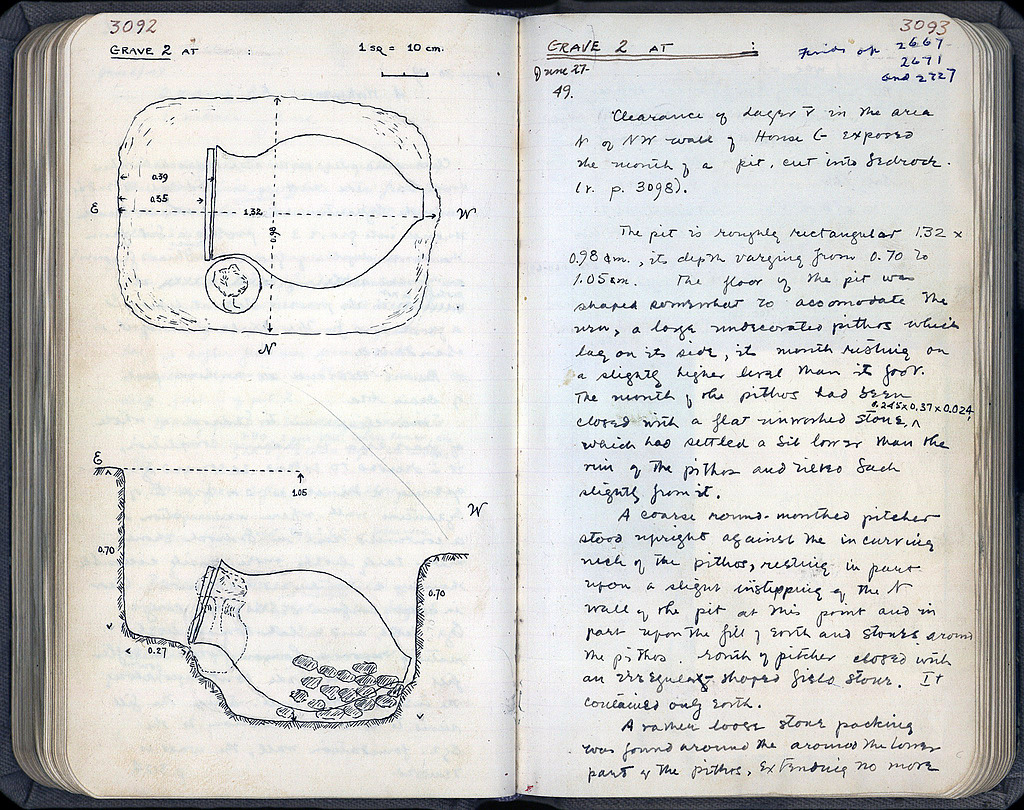 3092
GRAVE 2 AT :
1 SQ = 10 cm.
0.39
0.55
E
1.32
0.98
W
N
E
1.05
W
0.70
0.70
0.27
3093
GRAVE 2 AT :
Finds op 2667
2671
and 2727
June 27
49.
Clearance of Layer V in the area
N of NW wall of House G exposed
the mouth of a pit, cut into bedrock.
(v. p. 3098).
The pit is roughly rectangular 1.32 x
0.98 m., its depth varying from 0.70 to
1.05 m. The floor of the pit was
shaped somewhat to accomodate the
urn, a large undecorated pithos which
lay on its side, its mouth resting on
a slightly higher level than its foot.
The mouth of the pithos had been
closed with a flat unworked stone, ^ 0.245 x 0.37 x 0.024
which had settled a bit lower than the
rim of the pithos and tilted back
slightly from it.
A coarse round-mouthed pitcher
stood upright against the incurving
neck of the pithos, resting in part
upon a slight instepping of the N
wall of the pit at this point and in
part upon the fill of earth and stones around
the pithos. Mouth of pitcher closed with
an irregularly shaped field stone. It
contained only earth.
A rather loose stone packing
was found around the around the lower
part of the pithos, extending no more